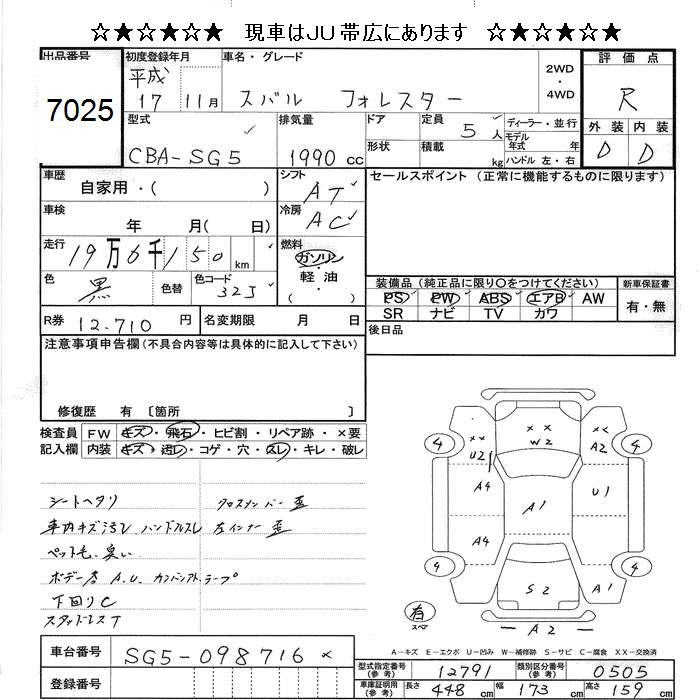 ☆★☆★☆★ 現車はJU帯広にあります ☆★☆★☆★
出品番号 初度登録年月 車名・グレード 2WD・4WD 評価点
7025 平成17 11月 スバル フォレスター R
型式 CBA-SG5 排気量 1990 cc ドア 形状 定員 5人 積載 kg ディーラー・並行 モデル年式 年 ハンドル 左・右 外装 内装
D D
車歴 自家用・( ) シフト AT セールスポイント (正常に機能するものに限ります)
車検 年 月( 日) 冷房 AC
走行 19万6千150 km 燃料 ガソリン・軽油 ( )
色 黒 色替 色コード 32J 装備品 (純正品に限り○をつけてください) 新車保証書
PS PW ABS エアB AW 有・無
SR ナビ TV カワ
R券 12,710 円 名変期限 月 日 後日品
注意事項申告欄 (不具合内容等は具体的に記入して下さい)
修復歴 有 〔箇所 〕
検査員記入欄 FW キズ・飛石・ヒビ割・リペア跡・×要
内装 キズ・汚レ・コゲ・穴・スレ・キレ・破レ
シートヘタリ クロスメンバー歪
車内キズ汚レ ハンドルスレ 左インナー歪
ペット毛、臭い
ボデー A.U.
下回りC
スタッドレスT
4 XX U2 XX W2 XX A2 4
A4 A1 U1
A4
4 S2 A1 4
有 スペア A2
A-キズ E-エクボ U-凹み W-補修跡 S-サビ C-腐食 XX-交換済
車台番号 SG5-098716
登録番号
型式指定番号(参考) 12791 類別区分番号(参考) 0505
車庫証明用(参考) 長さ 448 cm 幅 173 cm 高さ 159 cm